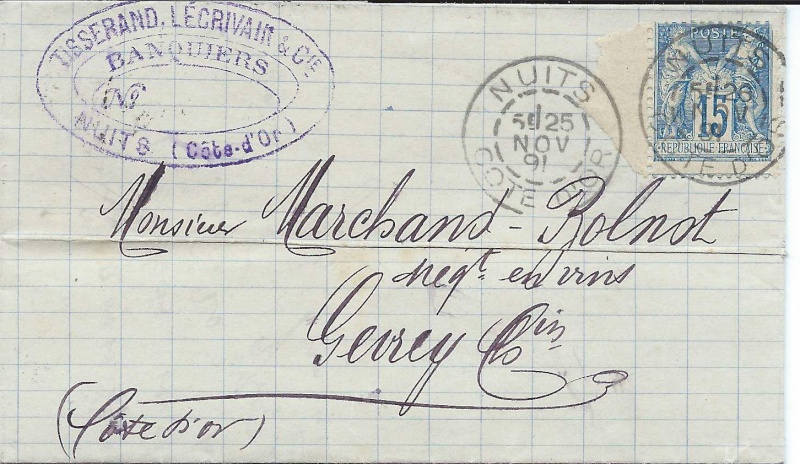 TISSERAND, LÉCRIVAIN & Cie
BANQUIERS
NUITS (Côte-d'Or)
NUITS
5E 25
NOV
91
COTE D'OR
POSTES
15
REPUBLIQUE FRANÇAISE
NUITS
5E 26
Monsieur Marchand-Bolnot
négt en vins
Gevrey Cin
(Côte d'or)